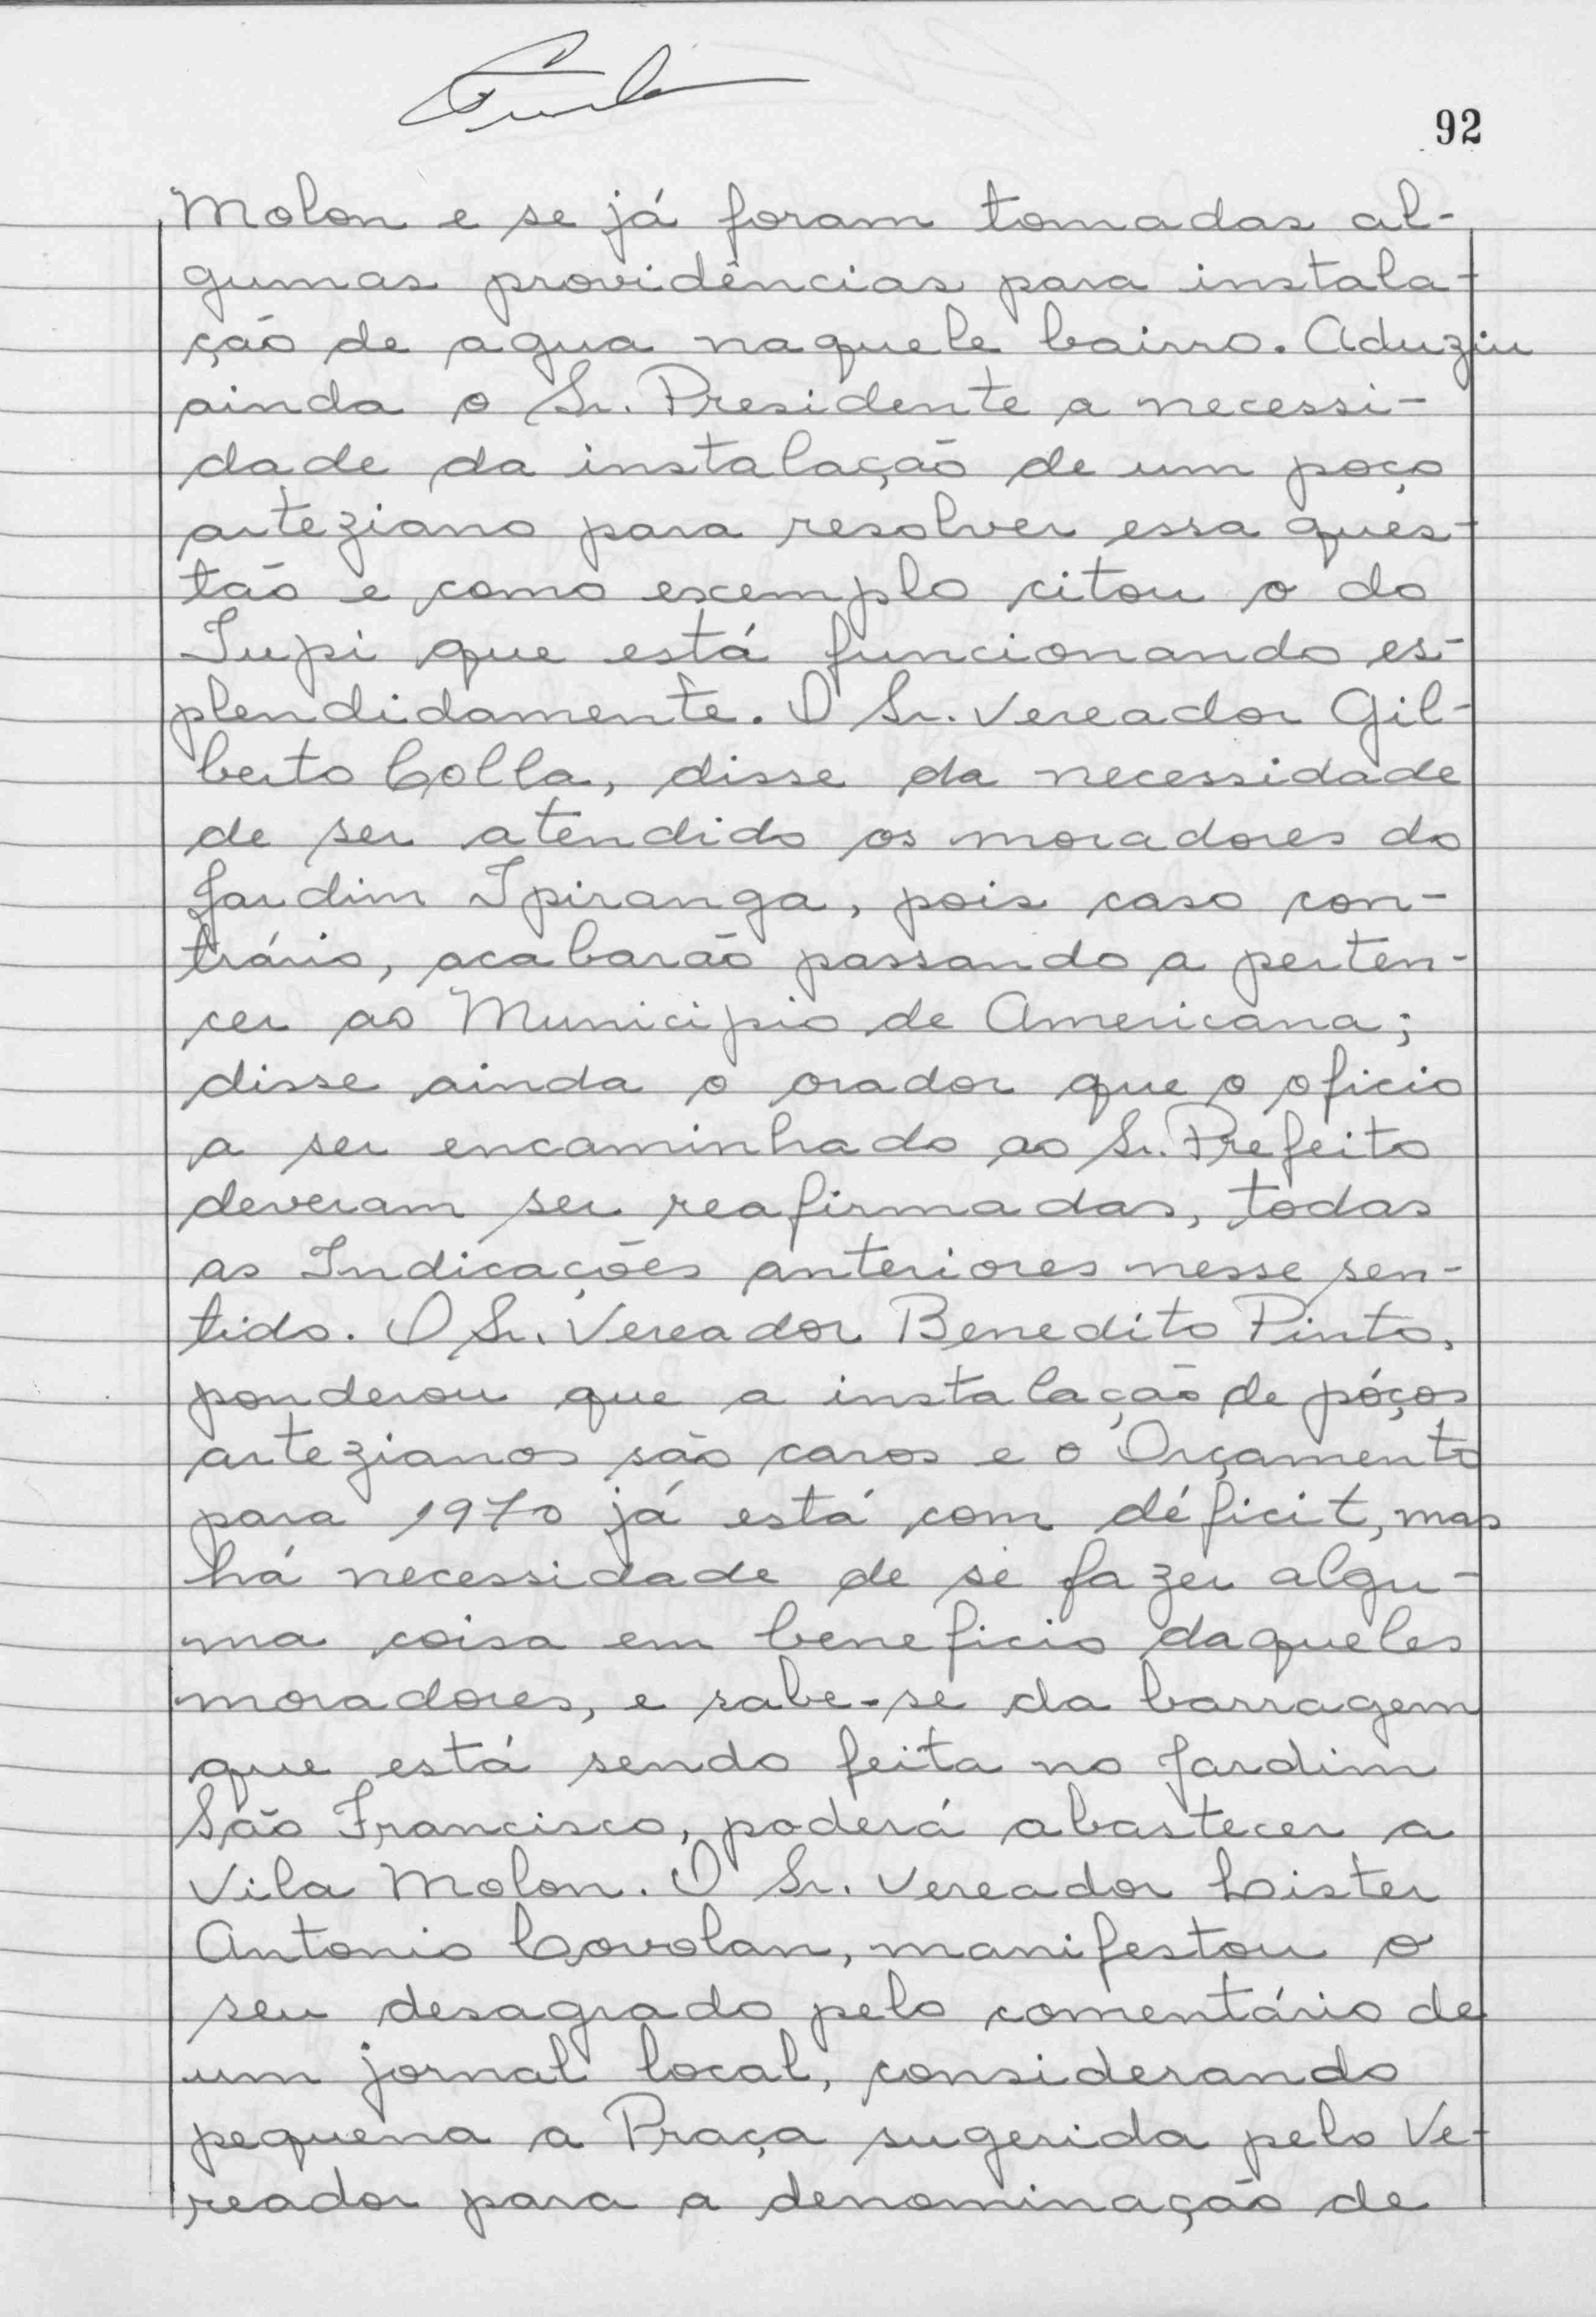 92
Molon e se já foram tomadas al-
gumas providências para instala-
ção de agua naquele bairro. Aduziu
ainda o Sr. Presidente a necessi-
dade da instalação de um poço
arteziano para resolver essa ques-
tão e como exemplo citou o do
Tupi que está funcionando es-
plendidamente. O Sr. Vereador Gil-
berto Colla, disse da necessidade
de ser atendido os moradores do
Jardim Ipiranga, pois caso con-
trário, acabarão passando a perten-
cer ao Municipio de Americana;
disse ainda o orador que o oficio
a ser encaminhado ao Sr. Prefeito
deveram ser reafirmadas, todas
as Indicações anteriores nesse sen-
tido. O Sr. Vereador Benedito Pinto,
ponderou que a instalação de póços
artezianos são caros e o Orçamento
para 1970 já está com déficit, mas
há necessidade de se fazer algu-
ma coisa em beneficio daqueles
moradores, e sabe-se da barragem
que está sendo feita no Jardim
São Francisco, poderá abastecer a
Vila Molon. O Sr. Vereador Lister
Antonio Covolan, manifestou o
seu desagrado pelo comentário de
um jornal local, considerando
pequena a Praça sugerida pelo Ve-
reador para a denominação de